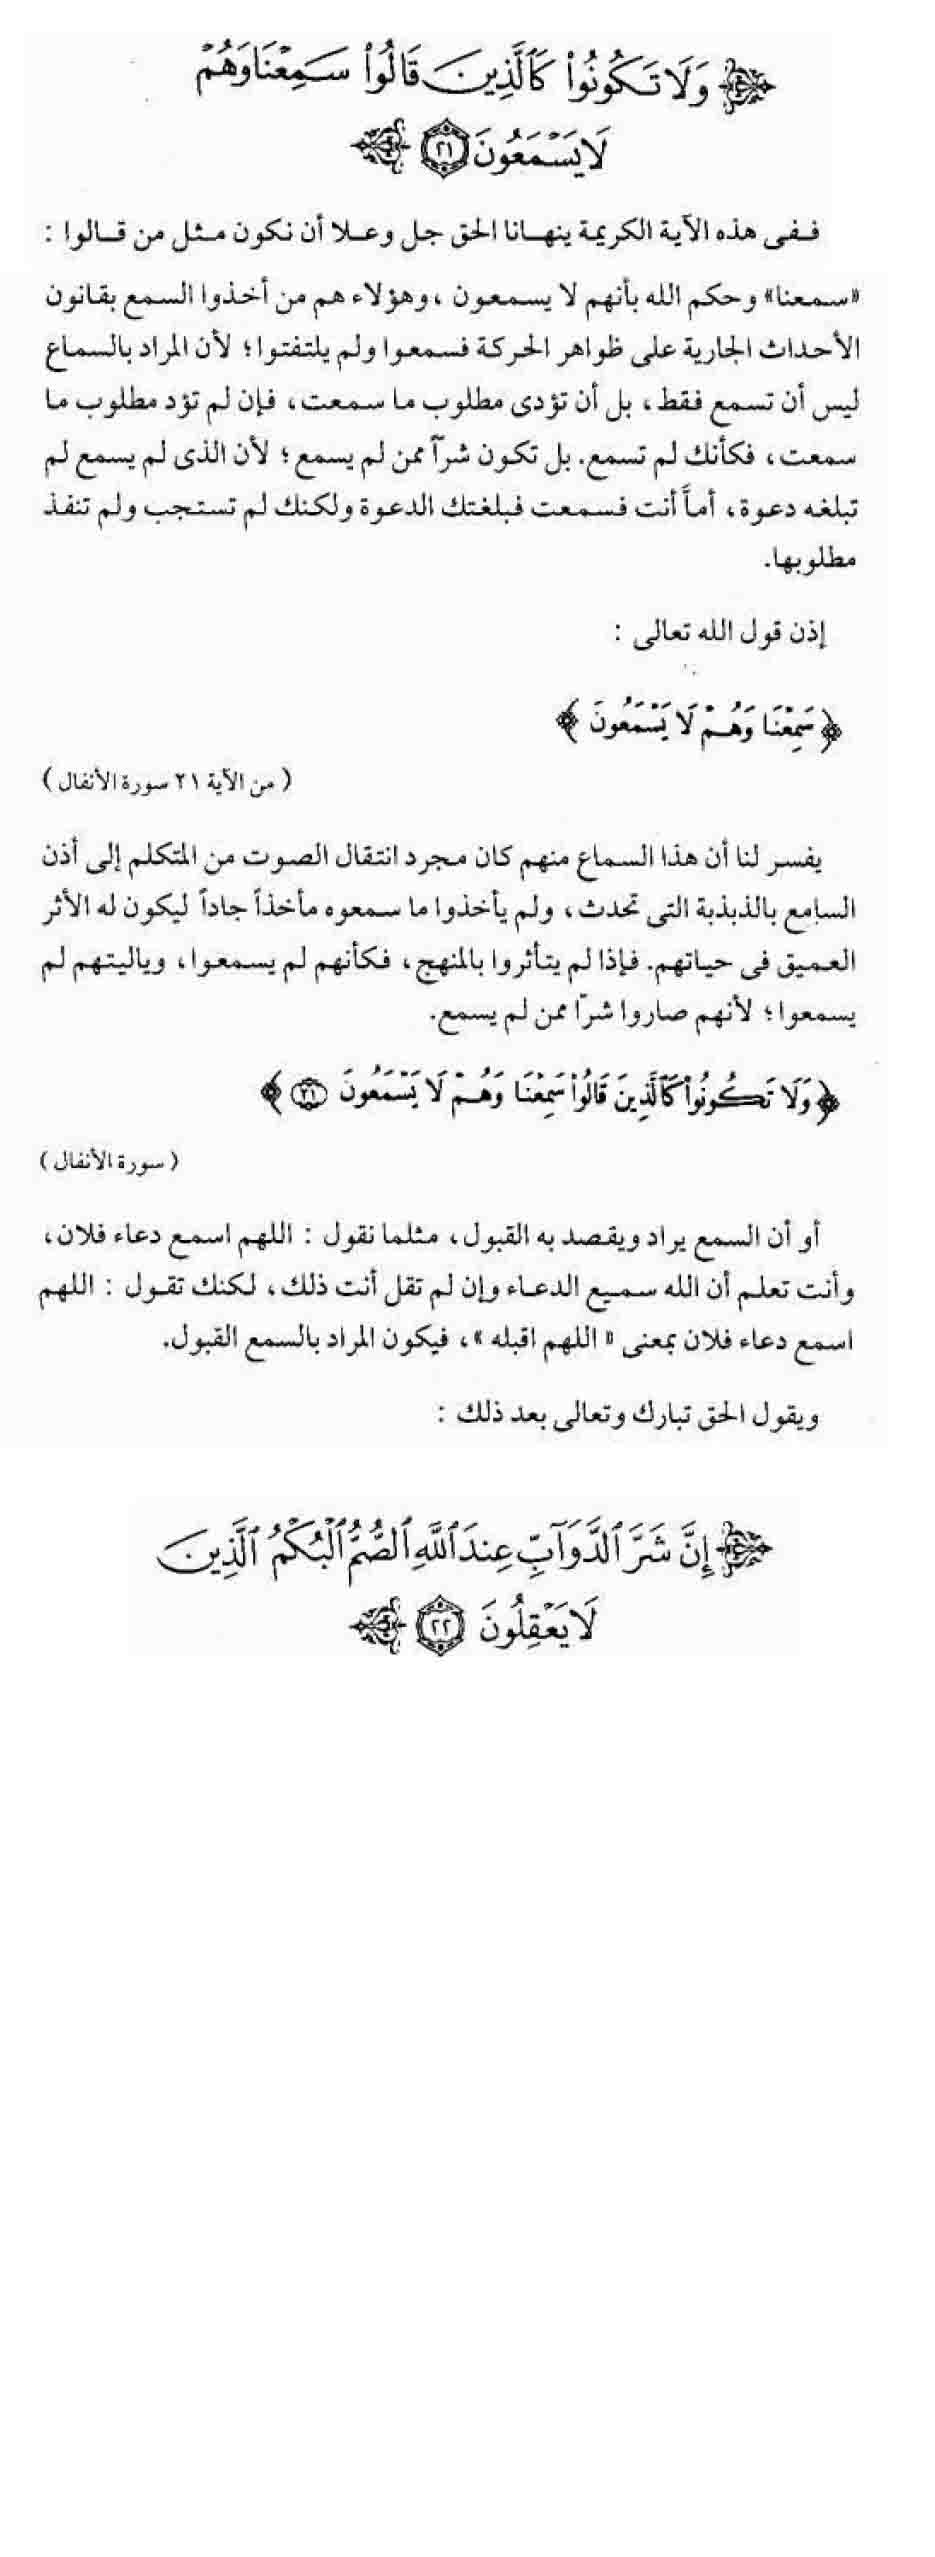 ﴿ وَلَا تَكُونُوا۟ كَٱلَّذِينَ قَالُوا۟ سَمِعْنَا وَهُمْ
لَا يَسْمَعُونَ ٢١ ﴾
ففى هذه الآية الكريمة ينهانا الحق جل وعلا أن نكون مثل من قالوا :
«سمعنا» وحكم الله بأنهم لا يسمعون ، وهؤلاء هم من أخذوا السمع بقانون
الأحداث الجارية على ظواهر الحركة فسمعوا ولم يلتفتوا؛ لأن المراد بالسماع
ليس أن تسمع فقط، بل أن تؤدى مطلوب ما سمعت، فإن لم تؤد مطلوب ما
سمعت، فكأنك لم تسمع. بل تكون شرآ ممن لم يسمع؛ لأن الذى لم يسمع لم
تبلغه دعوة، أماً أنت فسمعت فبلغتك الدعوة ولكنك لم تستجب ولم تنفذ
مطلوبها.
إذن قول الله تعالى :
﴿ سَمِعْنَا وَهُمْ لَا يَسْمَعُونَ ﴾
( من الآية ٢١ سورة الأنفال )
يفسر لنا أن هذا السماع منهم كان مجرد انتقال الصوت من المتكلم إلى أذن
السامع بالذبذبة التى تحدث، ولم يأخذوا ما سمعوه مأخذاً جاداً ليكون له الأثر
العميق فى حياتهم. فإذا لم يتأثروا بالمنهج، فكأنهم لم يسمعوا، وياليتهم لم
يسمعوا؛ لأنهم صاروا شرّا ممن لم يسمع.
﴿ وَلَا تَكُونُوا۟ كَٱلَّذِينَ قَالُوا۟ سَمِعْنَا وَهُمْ لَا يَسْمَعُونَ ٢١ ﴾
( سورة الأنفال )
أو أن السمع يراد ويقصد به القبول، مثلما نقول : اللهم اسمع دعاء فلان،
وأنت تعلم أن الله سميع الدعاء وإن لم تقل أنت ذلك، لكنك تقول : اللهم
اسمع دعاء فلان بمعنى « اللهم اقبله »، فيكون المراد بالسمع القبول.
ويقول الحق تبارك وتعالى بعد ذلك :
﴿ إِنَّ شَرَّ ٱلدَّوَآبِّ عِندَ ٱللَّهِ ٱلصُّمُّ ٱلْبُكْمُ ٱلَّذِينَ
لَا يَعْقِلُونَ ٢٢ ﴾